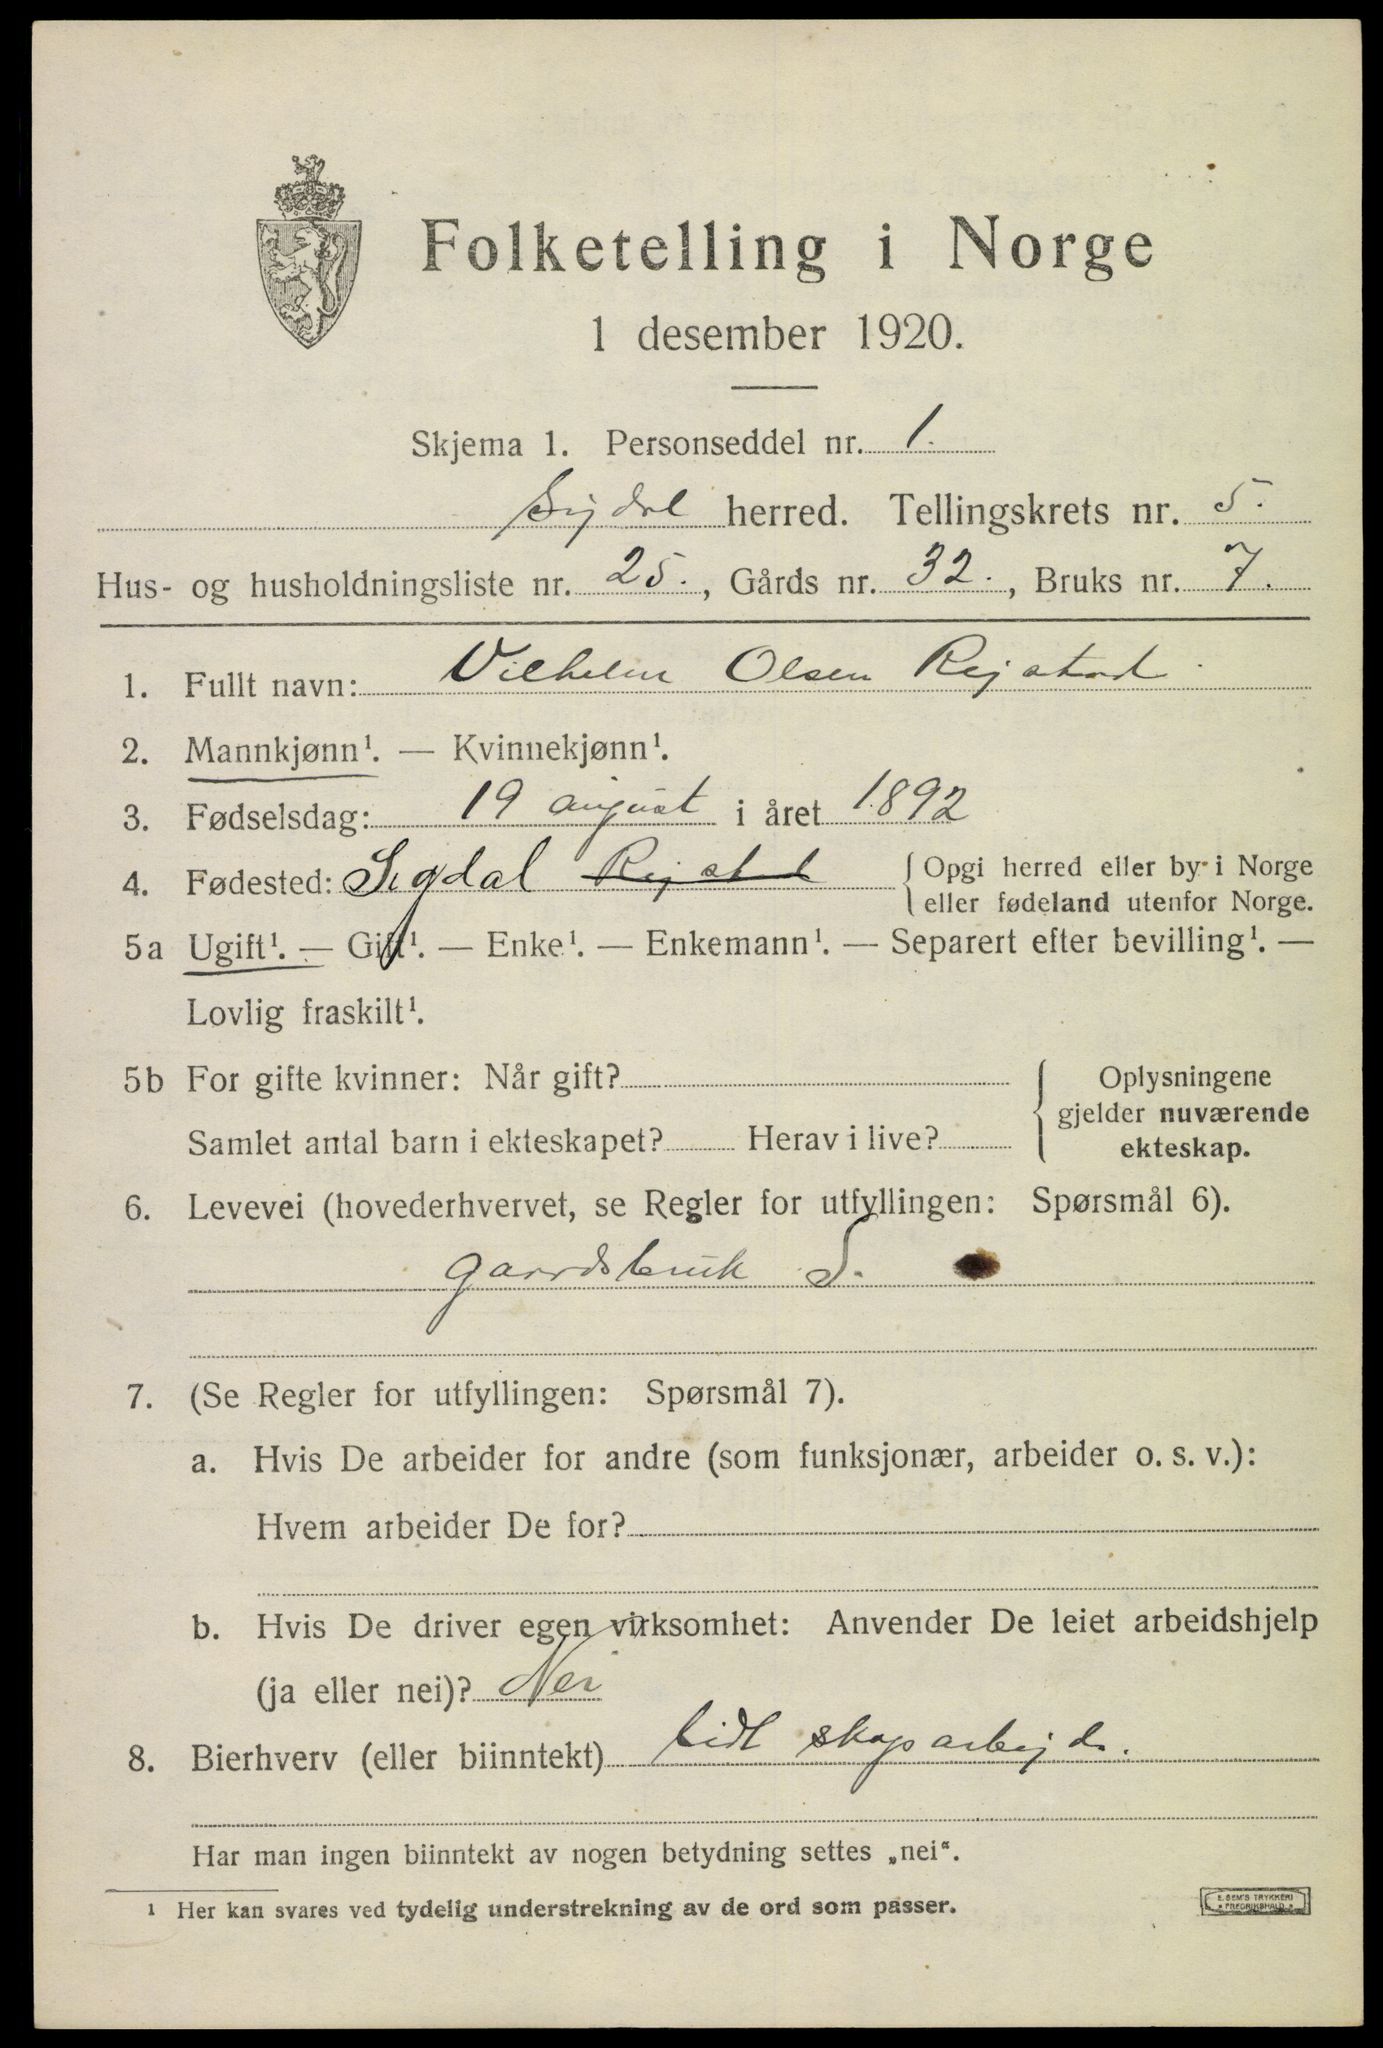 Folketelling i Norge
1 desember 1920.
Skjema 1. Personseddel nr. 1.
Sigdal herred. Tellingskrets nr. 5.
Hus- og husholdningsliste nr. 25., Gårds nr. 32., Bruks nr. 7.
1. Fullt navn: Vilhelm Olsen Rejstad
2. Mannkjønn¹. — Kvinnekjønn¹.
3. Fødselsdag: 19 august i året 1892
4. Fødested: Sigdal Rejstad { Opgi herred eller by i Norge
eller fødeland utenfor Norge.
5a Ugift¹. — Gift¹. — Enke¹. — Enkemann¹. — Separert efter bevilling¹. —
Lovlig fraskilt¹.
5b For gifte kvinner: Når gift?
Samlet antal barn i ekteskapet? Herav i live?
{ Oplysningene
gjelder nuværende
ekteskap.
6. Levevei (hovederhvervet, se Regler for utfyllingen: Spørsmål 6).
gaardsbruk S.
7. (Se Regler for utfyllingen: Spørsmål 7).
a. Hvis De arbeider for andre (som funksjonær, arbeider o. s. v.):
Hvem arbeider De for?
b. Hvis De driver egen virksomhet: Anvender De leiet arbeidshjelp
(ja eller nei)? Nei
8. Bierhverv (eller biinntekt) lidt skogsarbejde.
Har man ingen biinntekt av nogen betydning settes „nei“.
1 Her kan svares ved tydelig understrekning av de ord som passer.
E. SEM'S TRYKKERI
* FREDRIKSHALD *